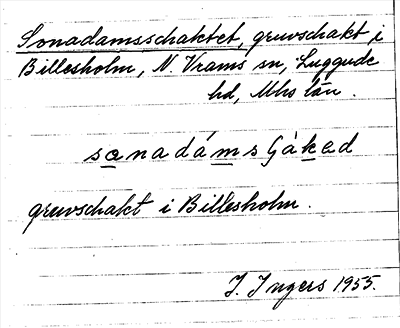 Sonadamsschaktet, gruvschakt i
Billesholm, N. Vrams sn, Luggude
hd, Mhs län.
sonadámsʃáked
gruvschakt i Billesholm.
I. Ingers 1955.